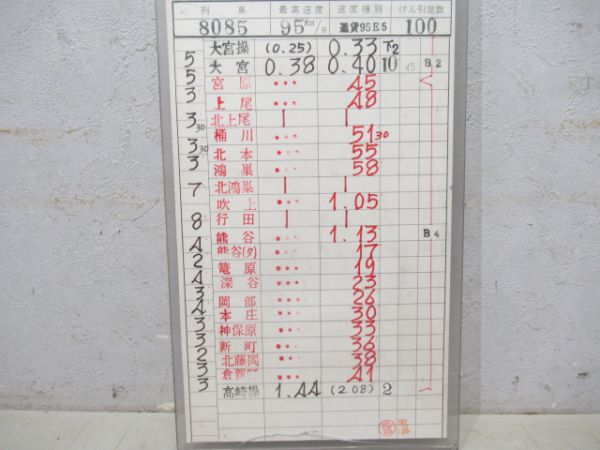 列 車 最高速度 速度種別 けん引定数
8085 95 KM/H 通貨95E5 100
大宮操 (0.25) 0.33 下2
5 大宮 0.38 0.40 10 45 B2
5 宮原 ••• 45
3 上尾 ••• 48
北上尾 | |
3 30 桶川 ••• 51 30
3 30 北本 ••• 55
3 鴻巣 ••• 58
北鴻巣 | |
7 吹上 ••• 1.05
行田 | |
8 熊谷 ••• 1.13 B4
4 熊谷(タ) ••• 17
2 篭原 ••• 19
4 深谷 ••• 23
3 岡部 ••• 26
4 本庄 ••• 30
3 神保原 ••• 33
3 新町 ••• 36
2 北藤岡 ••• 38
3 倉賀野 ••• 41
3 高崎操 1.44 (2.08) 2